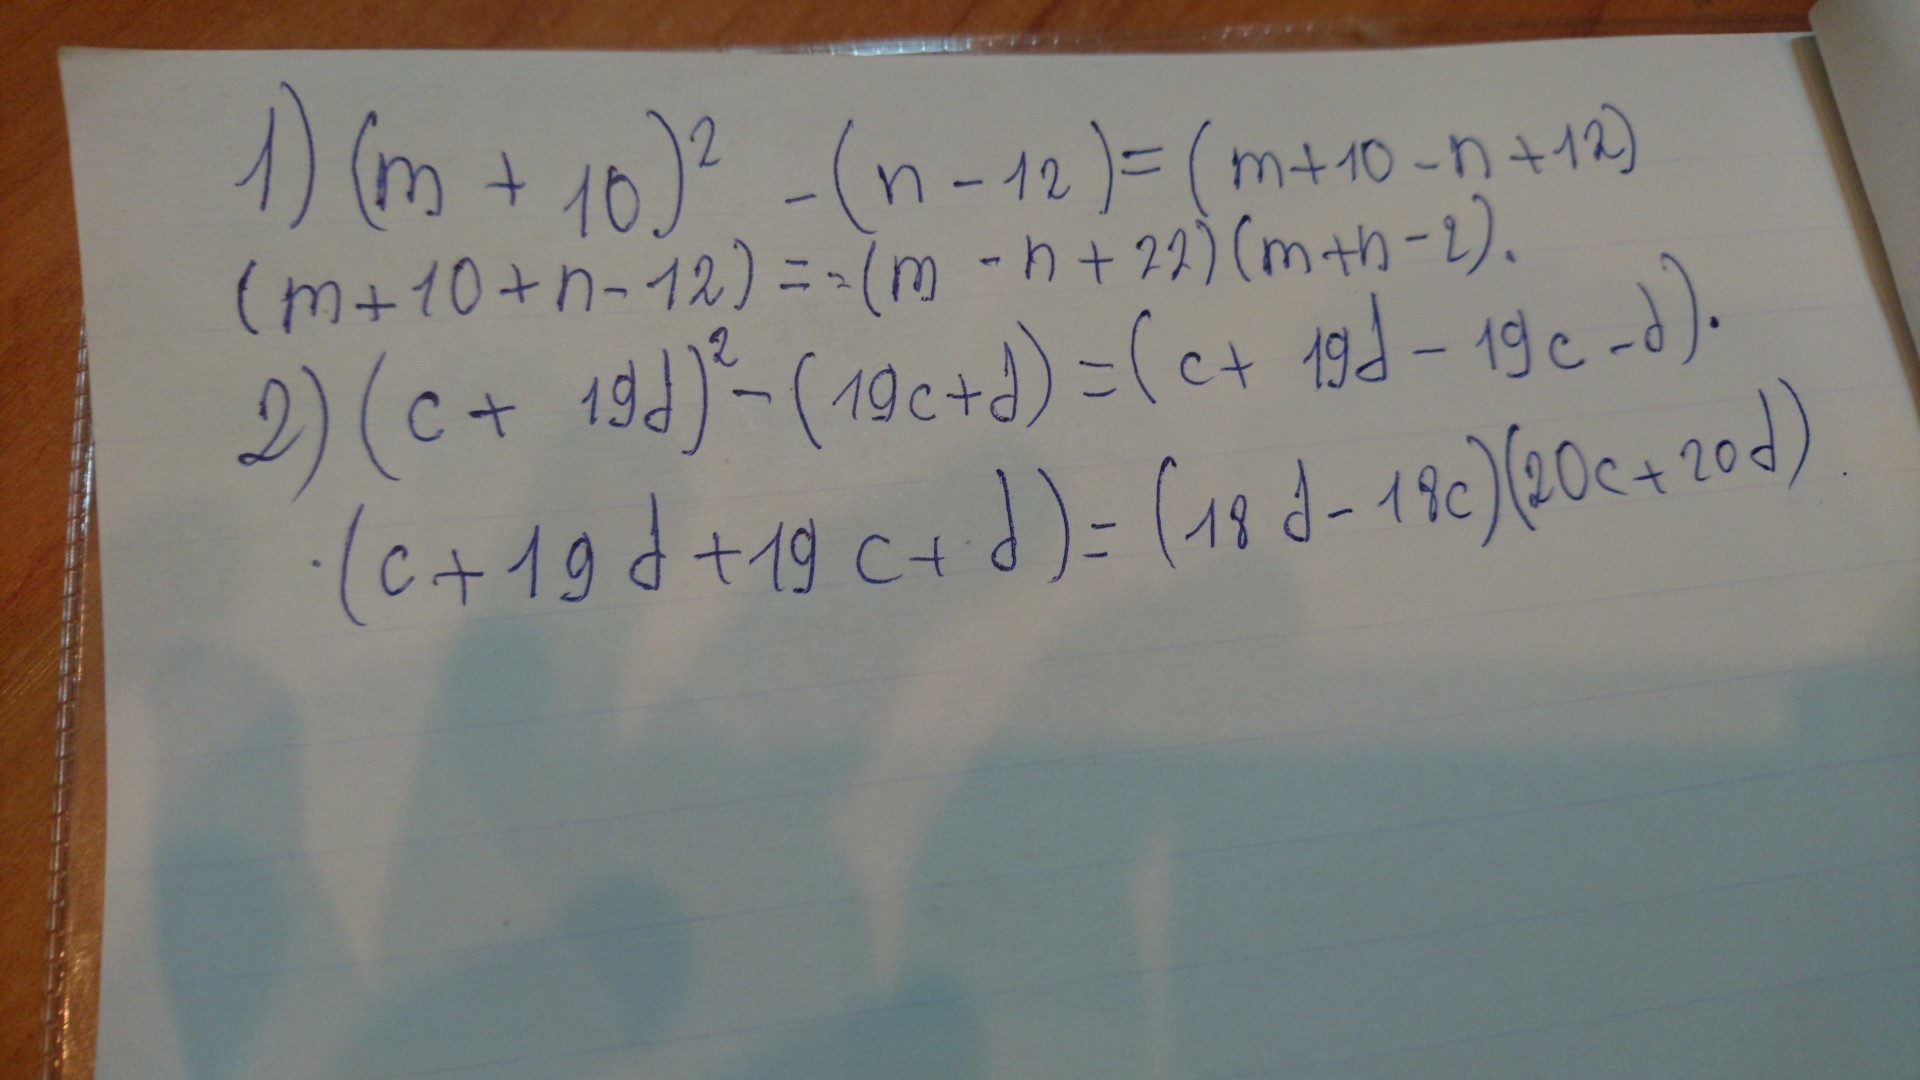 1) (m + 10)² - (n - 12) = (m+10 - n + 12)
(m+10+n-12) = = (m - n + 22)(m+n-2).
2) (c + 19d)² - (19c+d) = (c + 19d - 19c - d).
·(c+19d+19c+d) = (18d - 18c)(20c+20d).